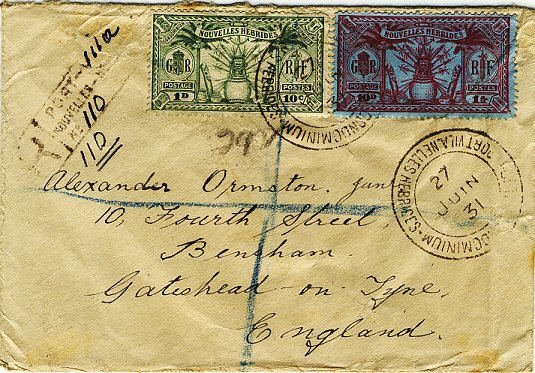 PORT-Vila
NOUVELLES-
No 110
110
NOUVELLES HEBRIDES
GR RF
POSTAGE POSTES
1D 10c
NOUVELLES HEBRIDES
GR RF
POSTAGE POSTES
10D 1fr
CONDOMINIUM
PORT VILA. NELLES HEBRIDES
CONDOMINIUM
27
JUIN
31
Alexander Ormston. junr
10, Fourth Street,
Bensham.
Gateshead-on-Tyne.
England.